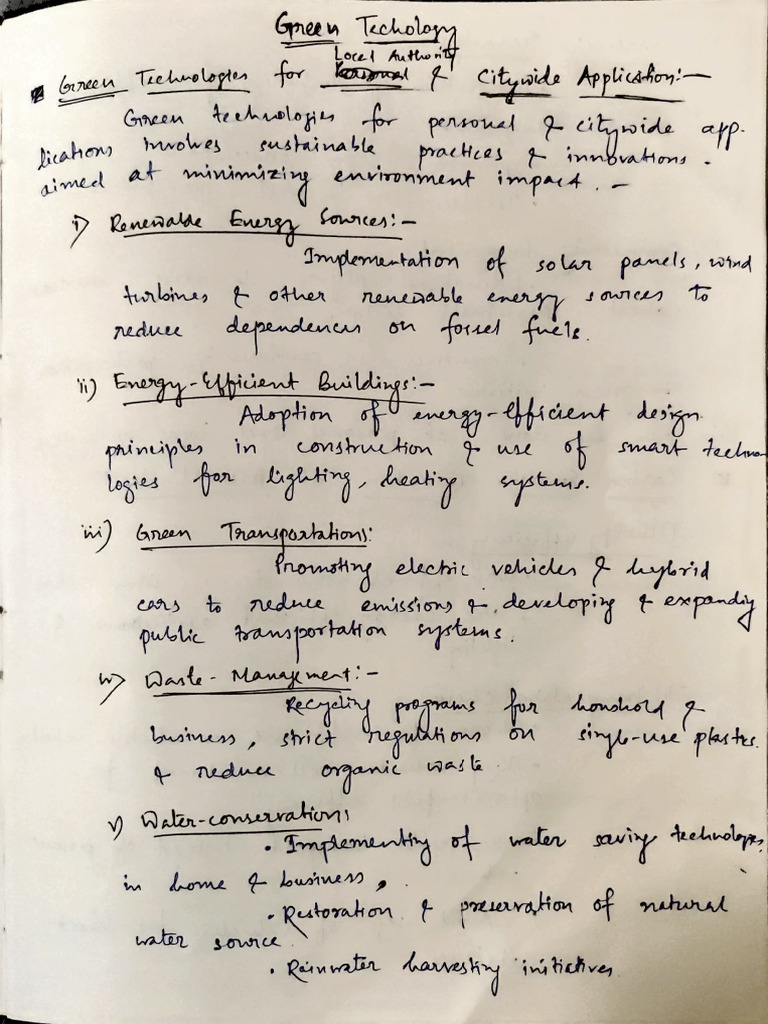 Green Techology
Local Authority
Green Technologies for & Citywide Application:-
Green technologies for personal & citywide app-
lications involves sustainable practices & innovations.
aimed at minimizing environment impact. -
i) Renewalde Energy Sources:-
Implementation of solar panels, wind
turbines & other renewable energy sources to
reduce dependences on fossel fuels.
ii) Energy-Efficient Buildings:-
Adoption of energy-efficient design
principles in construction & use of smart techno
logies for lighting, heating systems.
iii) Green Transportations:
Promoting electric vehicles & hybrid
cars to reduce emissions &, developing & expanding
public transportation systems.
iv) Waste-Management:-
Recycling programs for houshold &
business, strict regulations on single-use plastics.
& reduce organic waste.
v) Water-conservation:
• Implementing of water saving technologies,
in home & business,
• Restoration & preservation of natural
water source.
• Rainwater harvesting initiatives